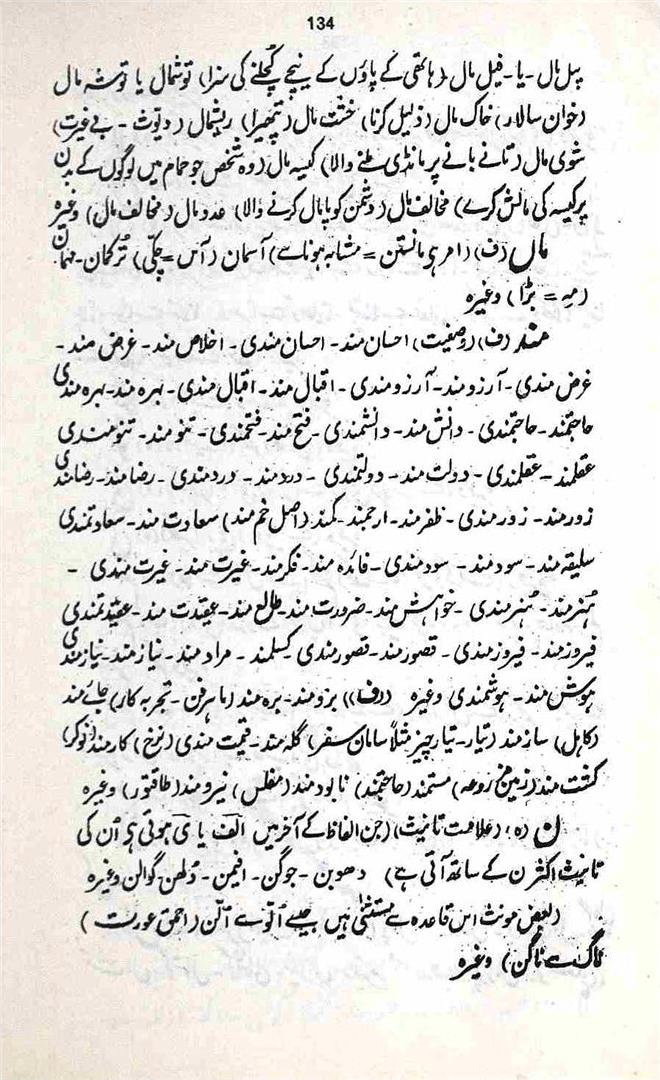 134
پیل مال - یا - فیل مال (ہاتھی کے پاؤں کے نیچے کچلنے کی سزا) توشمال یا توشہ مال
(خوان سالار) خاک مال (ذلیل کرنا) خشت مال (تھپیرا) ریشمال (دیوث - بے غیرت)
شوی مال (تانے بانے پر مانڈی ملنے والا) کیسہ مال (وہ شخص جو حمام میں لوگوں کے بدن
پر کیسہ کی مالش کرے) مخالف مال (دشمن کو پامال کرنے والا) عدو مال (مخالف مال) وغیرہ
ماں (ف) (امر ہی مانستن = مشابہ ہونا سے) آسمان (آس = چکی) ترکمان - مہمان
(مہ = بڑا) وغیرہ
مند (ف) (وصفیت) احسان مند - احسان مندی - اخلاص مند - غرض مند -
غرض مندی - آرزو مند - آرزو مندی - اقبال مند - اقبال مندی - بہرہ مند - بہرہ مندی
حاجتمند - حاجتمندی - دانش مند - دانشمندی - فتح مند - فتحمندی - تنو مند - تنومندی
عقلمند - عقلمندی - دولت مند - دولتمندی - درد مند - درد مندی - رضا مند - رضامندی
زور مند - زور مندی - ظفر مند - ارجمند - کمند (اصل خم مند) سعادت مند - سعادتمندی
سلیقہ مند - سود مند - سود مندی - فائدہ مند - فکر مند - غیرت مند - غیرت مندی -
ہنر مند - ہنر مندی - خواہش مند - ضرورت مند - طالع مند - عقیدت مند - عقیدتمندی
فیروز مند - فیروز مندی - قصور مند - قصور مندی کسلمند - مراد مند - نیاز مند - نیازمندی
ہوش مند - ہوشمندی وغیرہ (ف)) بزو مند - برہ مند (ماہر فن - تجربہ کار) جائے مند
(کاہل) ساز مند (تیار - تیار چیز مثلاً سامان سفر) گلہ مند - قیمت مندی (نرخ) کار مند (نوکر)
کشت مند (زمین مزروعہ) مستمند (حاجتمند) نابود مند (مفلس) نیرو مند (طاقتور) وغیرہ
ن (ہ) (علامت تانیث) (جن الفاظ کے آخر میں الف یا ی ہوتی ہے ان کی
تانیث اکثر ن کے ساتھ آتی ہے) دھوبن - جوگن - افیمن - دلھن - گوالن وغیرہ
(بعض مونث اس قاعدہ سے مستثنیٰ ہیں جیسے الّو سے الّن (احمق عورت)
ناگ سے ناگن) وغیرہ